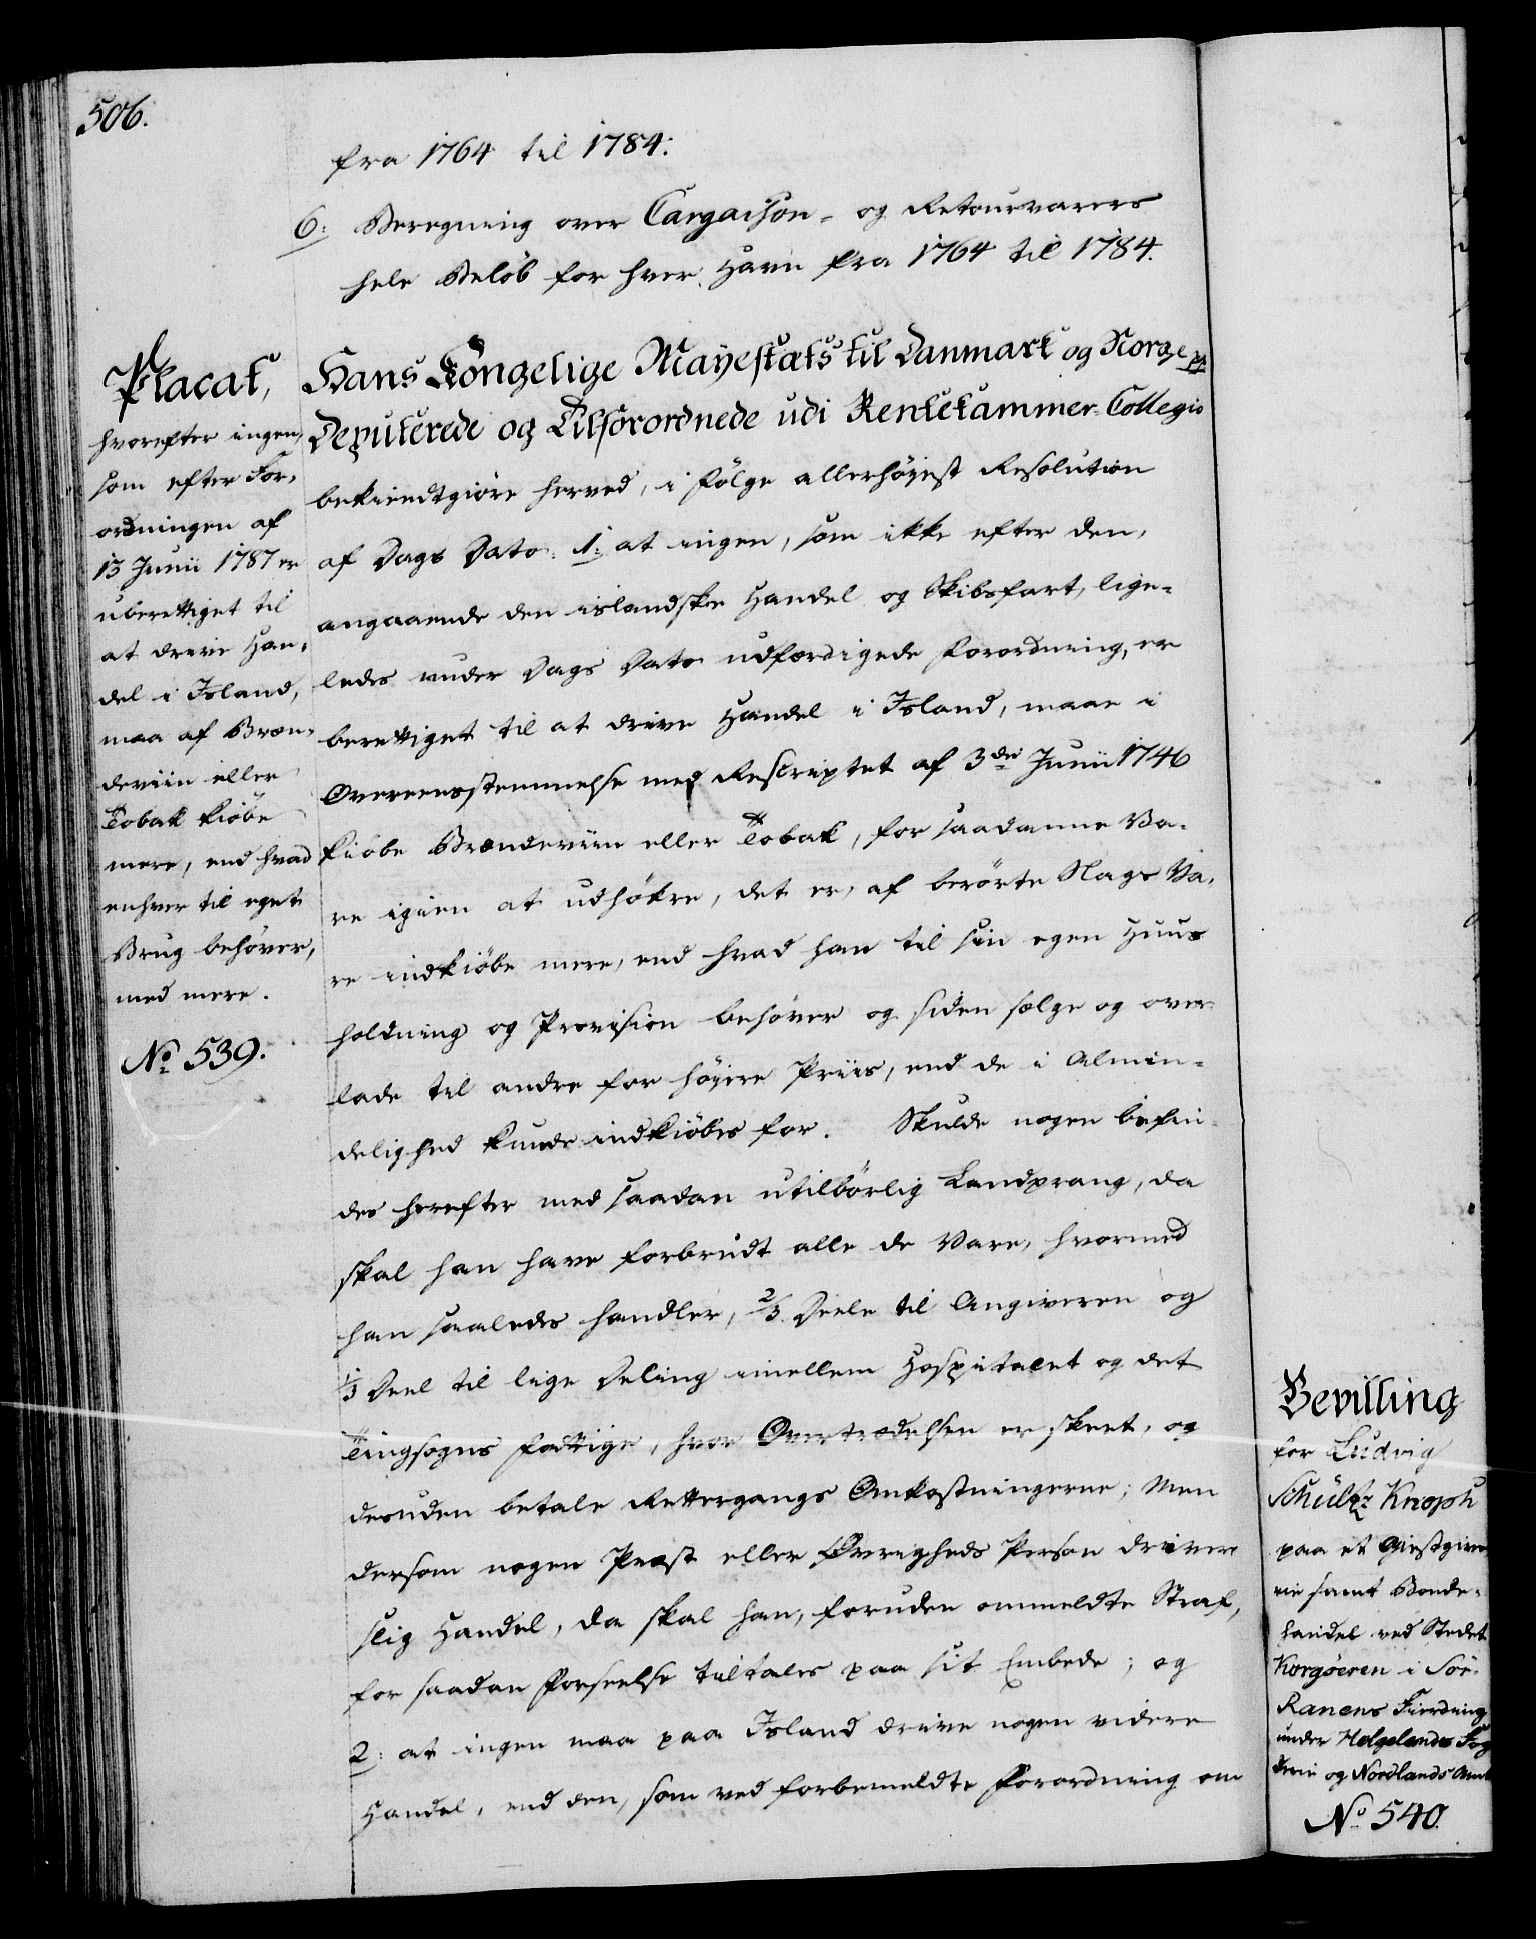 506.
fra 1764 til 1784.
6. Beregning over Cargaison- og Retourvarers
hele Beløb for hver Havn fra 1764 til 1784.
Placat,
hvorefter ingen,
som efter For-
ordningen af
13 Junii 1787 er
uberettiget til
at drive Han-
del i Island,
maa af Bræn-
deviin eller
Tobak kiøbe
mere, end hvad
enhver til eget
Brug behøver,
med mere.
No 539.
Hans Kongelige Mayestæts til Danmark og Norge pp
Deputerede og Tilforordnede udi Rentekammer-Collegio
bekiendtgiøre herved, i følge allerhøyest Resolution
af Dags Dato: 1: at ingen, som ikke efter den,
angaaende den islandske Handel og Skibsfart, lige-
ledes under Dags Dato udfærdigede Forordning, er
berettiget til at drive Handel i Island, maae i
Overeensstemmelse med Rescriptet af 3de Junii 1746
kiøbe Brændeviin eller Tobak, for saadanne Va-
re igien at udhøkre, det er, af berørte Slags Va-
re indkiøbe mere, end hvad han til sin egen Huus
holdning og Provision behøver og siden sælge og over
lade til andre for høyere Priis, end de i Almin-
delighed kunde indkiøbes for. Skulde nogen befin
des herefter med saadan utilbørlig Landprang, da
skal han have forbrudt alle de Vare, hvormed
han saaledes handler, 2/3 Deele til Angiveren og
1/3 Deel til lige Deling imellem Hospitalet og det
Tingsogns fattige, hvor Overtrædelsen er skeet, og
desuden betale Rettergangs Omkostningerne; Men
dersom nogen Præst eller Øvrigheds Person driver
slig Handel, da skal han, foruden ommeldte Straf,
for saadan Forseelse tiltales paa sit Embede; og
2: at ingen maa paa Island drive nogen videre
Handel, end den, som ved forbemeldte Forordning om
Bevilling
for Ludvig
Schultz Knoph
paa et Giestgive
rie samt Bonde-
handel ved Stedet
Korgöeren i Sör-
Ranens Fierding
under Helgelands Fog
derie og Nordlands Amt
No 540.